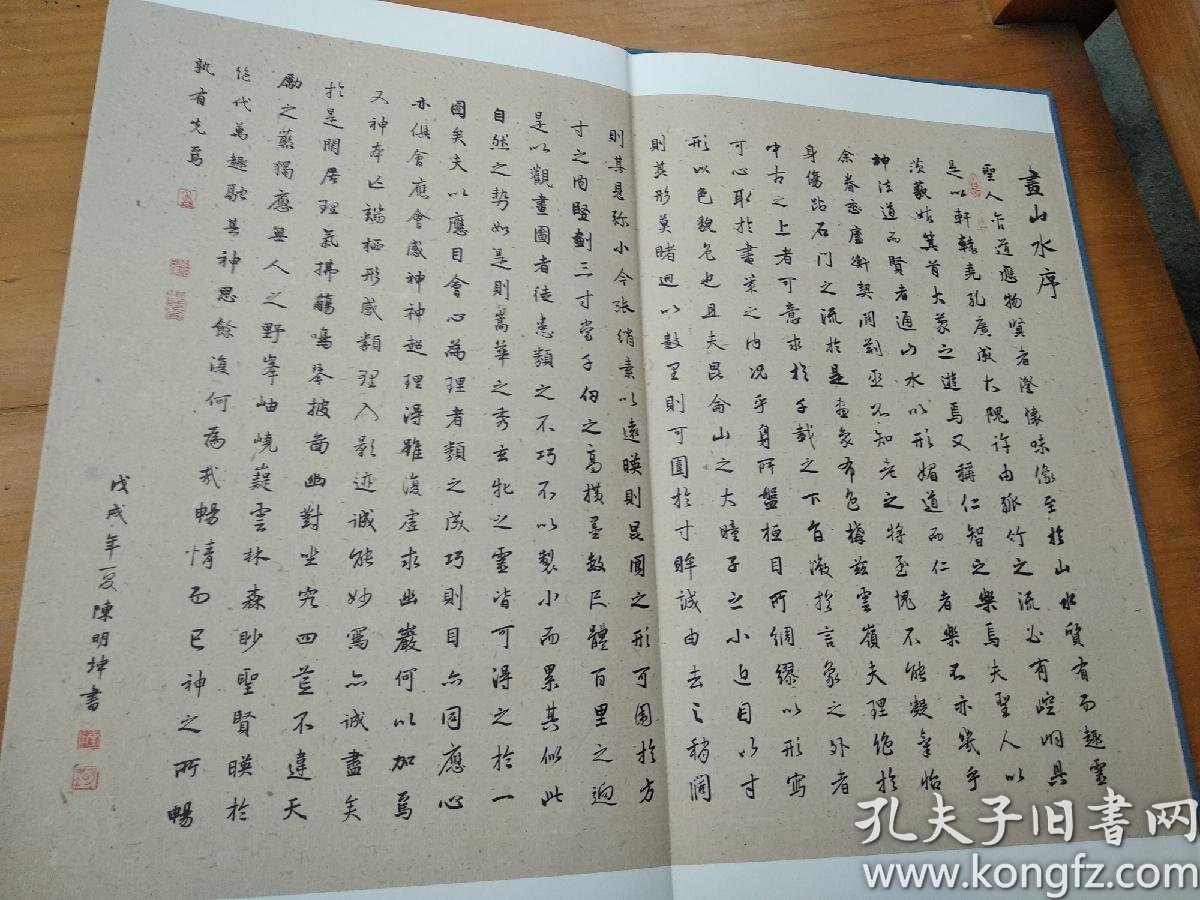 畫山水序
聖人含道應物賢者澄懷味像至於山水質有而趣靈
是以軒轅堯孔廣成大隗許由孤竹之流必有崆峒具
茨藐姑箕首大蒙之遊焉又稱仁智之樂焉夫聖人以
神法道而賢者通山水以形媚道而仁者樂不亦幾乎
余眷戀廬衡契闊荊巫不知老之將至愧不能凝氣怡
身傷跕石門之流於是畫象布色構茲雲嶺夫理絕於
中古之上者可意求於千載之下旨微於言象之外者
可心取於書策之內況乎身所盤桓目所綢繆以形寫
形以色貌色也且夫昆侖山之大瞳子之小迫目以寸
則其形莫睹迥以數里則可圍於寸眸誠由去之稍闊
則其見彌小今張綃素以遠暎則昆閬之形可圍於方
寸之內豎劃三寸當千仞之高橫墨數尺體百里之迥
是以觀畫圖者徒患類之不巧不以製小而累其似此
自然之勢如是則嵩華之秀玄牝之靈皆可得之於一
圖矣夫以應目會心為理者類之成巧則目亦同應心
亦俱會應會感神神超理得雖復虛求幽巖何以加焉
又神本亡端栖形感類理入影迹誠能妙寫亦誠盡矣
於是閒居理氣拂觴鳴琴披圖幽對坐究四荒不違天
勵之藂獨應無人之野峯岫嶢嶷雲林森眇聖賢暎於
絕代萬趣融其神思餘復何為哉暢情而已神之所暢
孰有先焉
戊戌年夏陳明坤書
孔夫子旧書网
www.kongfz.com